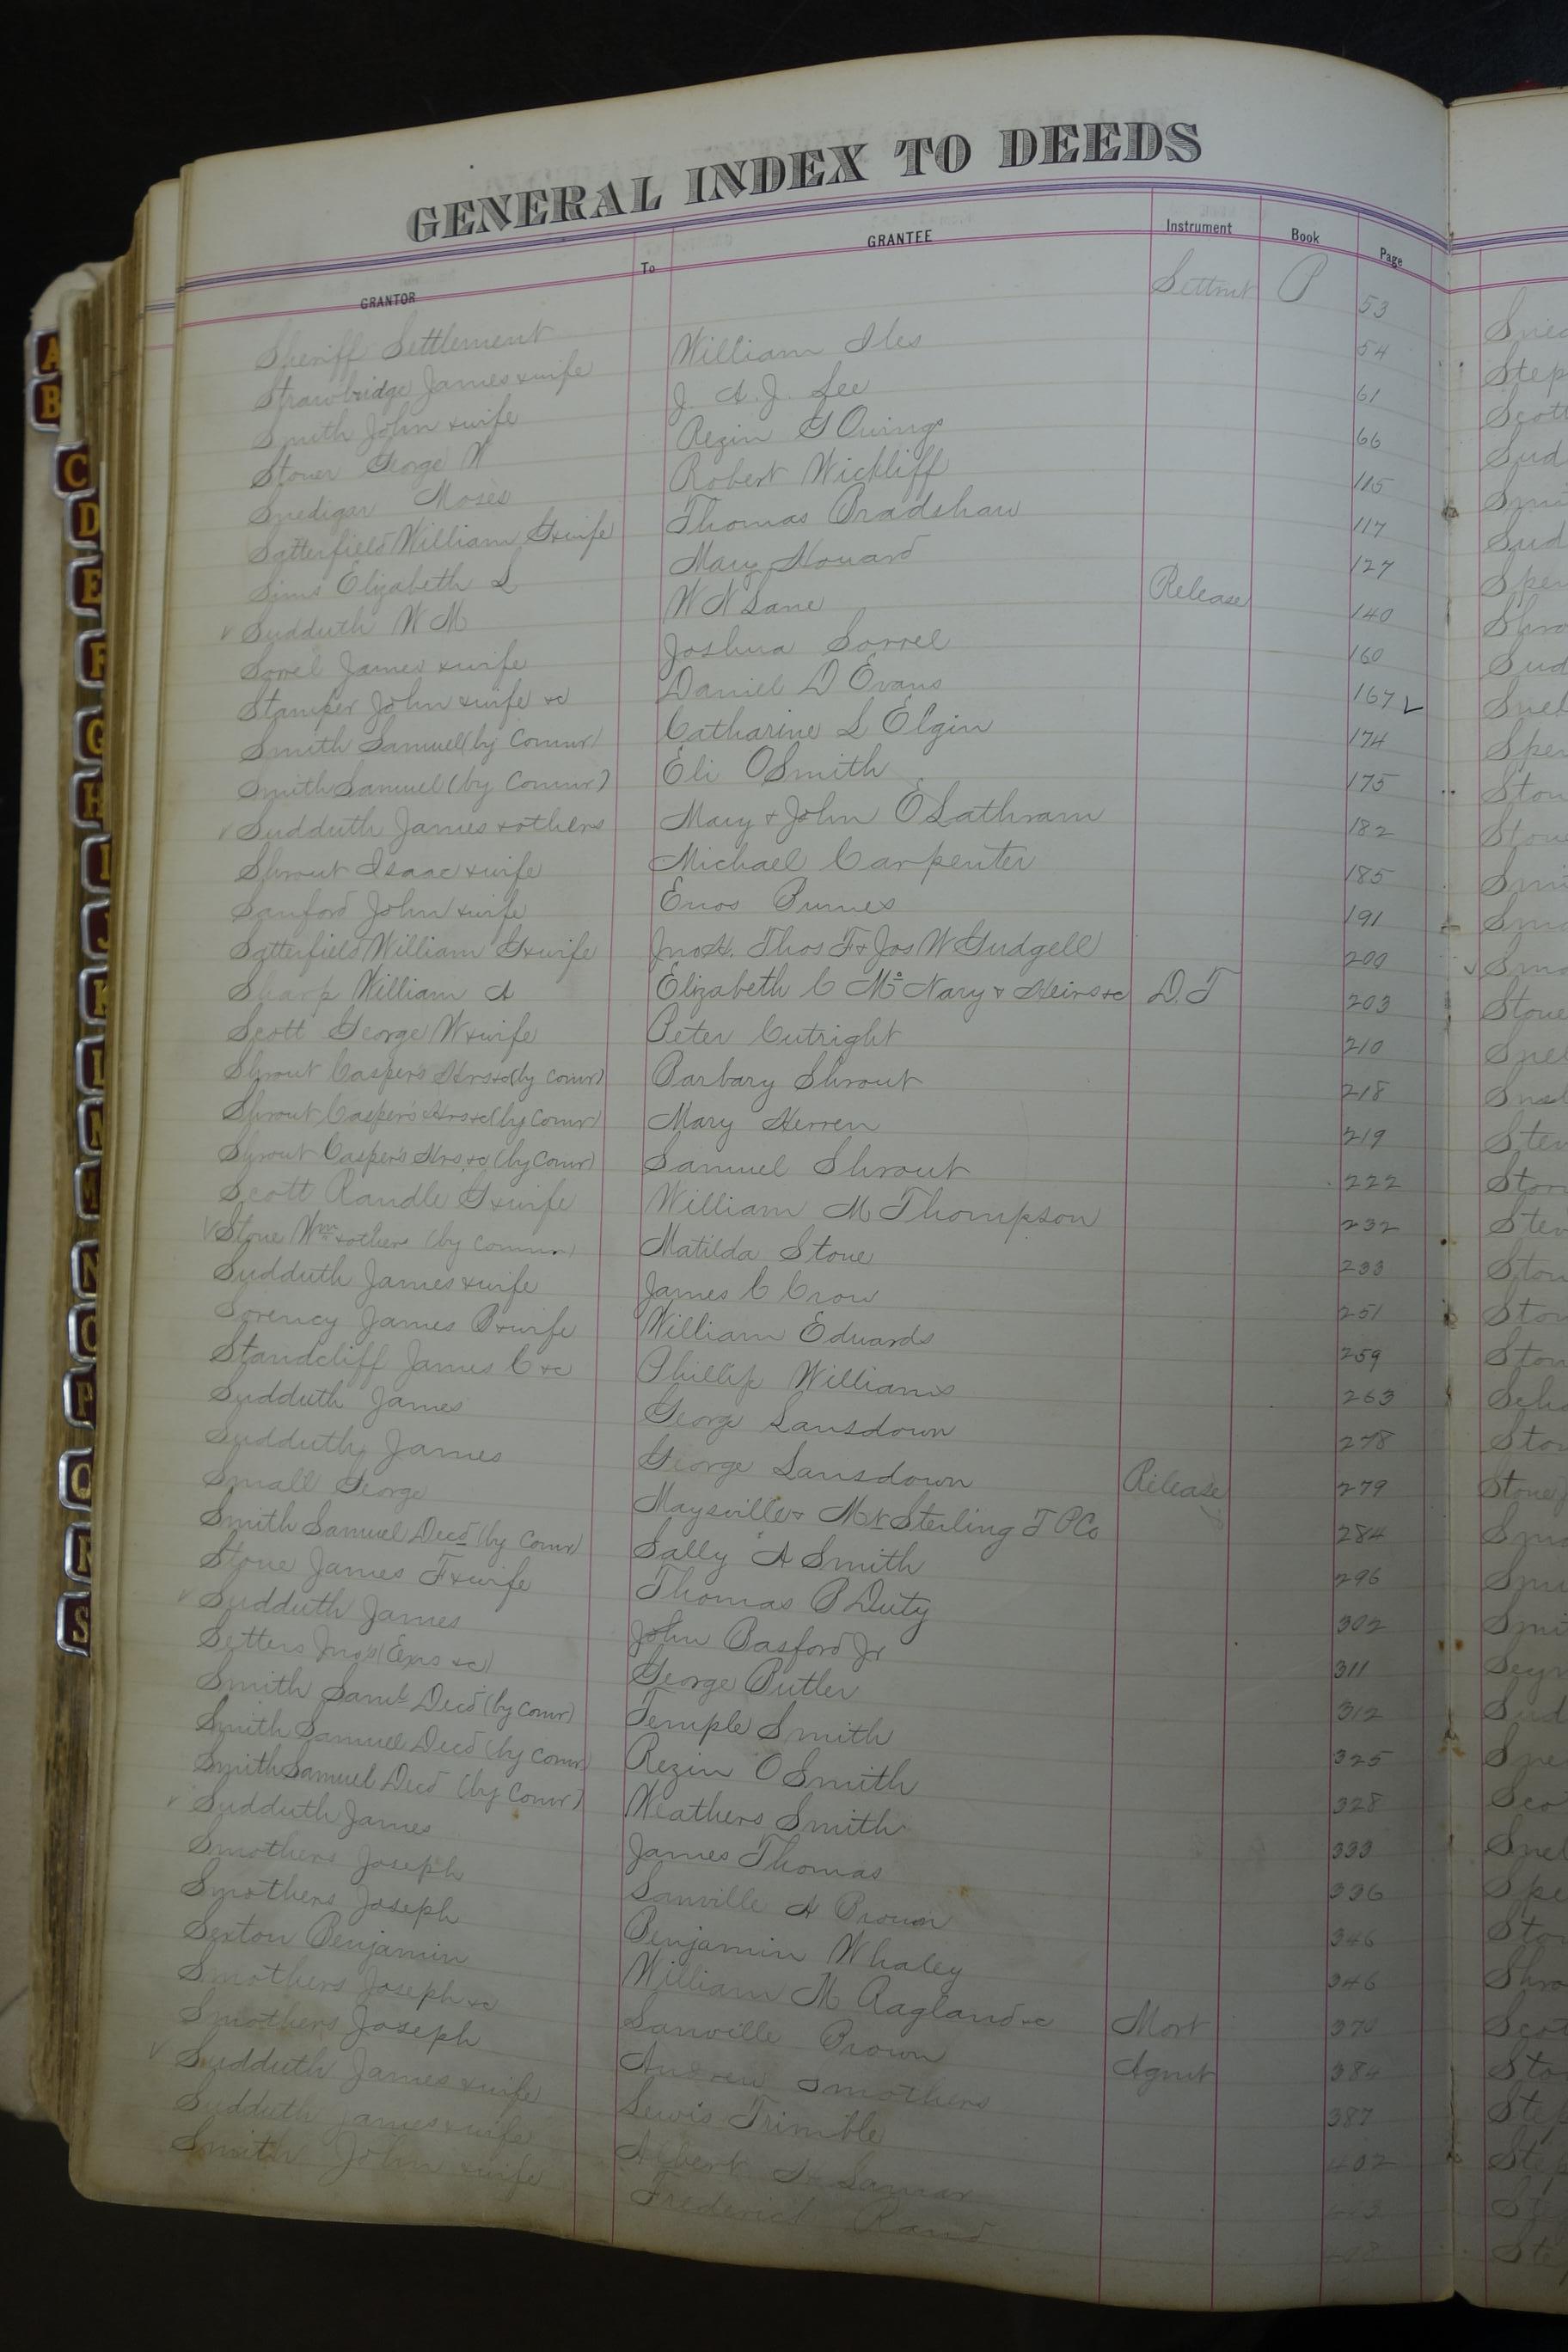 GENERAL INDEX TO DEEDS
GRANTOR To GRANTEE Instrument Book Page
Sheriff Settlement Settmt P 53
Strawbridge James & wife William Iles 54
Smith John & wife J. A. J. Lee 61
Stoner George W Rezin G Owings 66
Snedigar Moses Robert Wickliff 115
Satterfield William G & wife Thomas Bradshaw 117
Sims Elizabeth L Mary Howard 127
✓ Sudduth W M W N Lane Release 140
Sorrel James & wife Joshua Sorrel 160
Stamper John & wife &c Daniel D Evans 167 ✓
Smith Samuel (by Commr) Catharine L Elgin 174
Smith Samuel (by Commr) Eli O Smith 175
✓ Sudduth James & others Mary & John E Lathram 182
Shrout Isaac & wife Michael Carpenter 185
Sanford John & wife Enos 191
Satterfield William G & wife Jno H. Thos F & Jos W Gudgell 200
Sharp William A Elizabeth C McNary & Heirs &c D.T 203
Scott George W & wife Peter Cutright 210
Shrout Casper's Hrs &c (by Comr) Barbary Shrout 218
Shrout Casper's Hrs &c (by Comr) Mary Herren 219
Shrout Casper's Hrs &c (by Comr) Samuel Shrout 222
Scott Randle G & wife William M Thompson 232
✓ Stone Wm & others (by Commr) Matilda Stone 233
Sudduth James & wife James C Crow 251
Sorency James B & wife William Edwards 259
Standcliff James C &c Phillip Williams 263
Sudduth James George Lansdown 278
Sudduth James George Lansdown Release 279
Small George Maysville & Mt Sterling T P Co 284
Smith Samuel Decd (by Comr) Sally A Smith 296
Stone James F & wife Thomas P Duty 302
✓ Sudduth James John Basford Jr 311
Setters (Exrs &c) George Butler 312
Smith Saml Decd (by Comr) Temple Smith 325
Smith Samuel Decd (by Comr) Rezin O Smith 328
Smith Samuel Decd (by Comr) Weathers Smith 333
✓ Sudduth James James Thomas 336
Smothers Joseph Sanville A Brown 346
Smothers Joseph Benjamin Whaley 346
Sexton Benjamin William M Ragland &c Mort 370
Smothers Joseph &c Sanville Brown Agmt 384
Smothers Joseph Andrew Smothers 387
✓ Sudduth James & wife Lewis Trimble 402
Sudduth James & wife Albert S Lamar
Smith John & wife Frederick Rand
A
B
C
D
E
F
G
H
I
J
K
L
M
N
O
P
Q
R
S